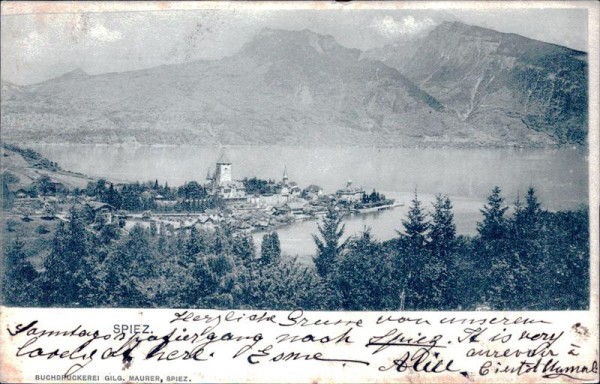 SPIEZ.
Herzlichste Grüsse von unserem
Sonntagsspaziergang nach Spiez. It is very
lovely at here. Esme
au revoir à
BUCHDRUCKEREI GILG. MAURER, SPIEZ.